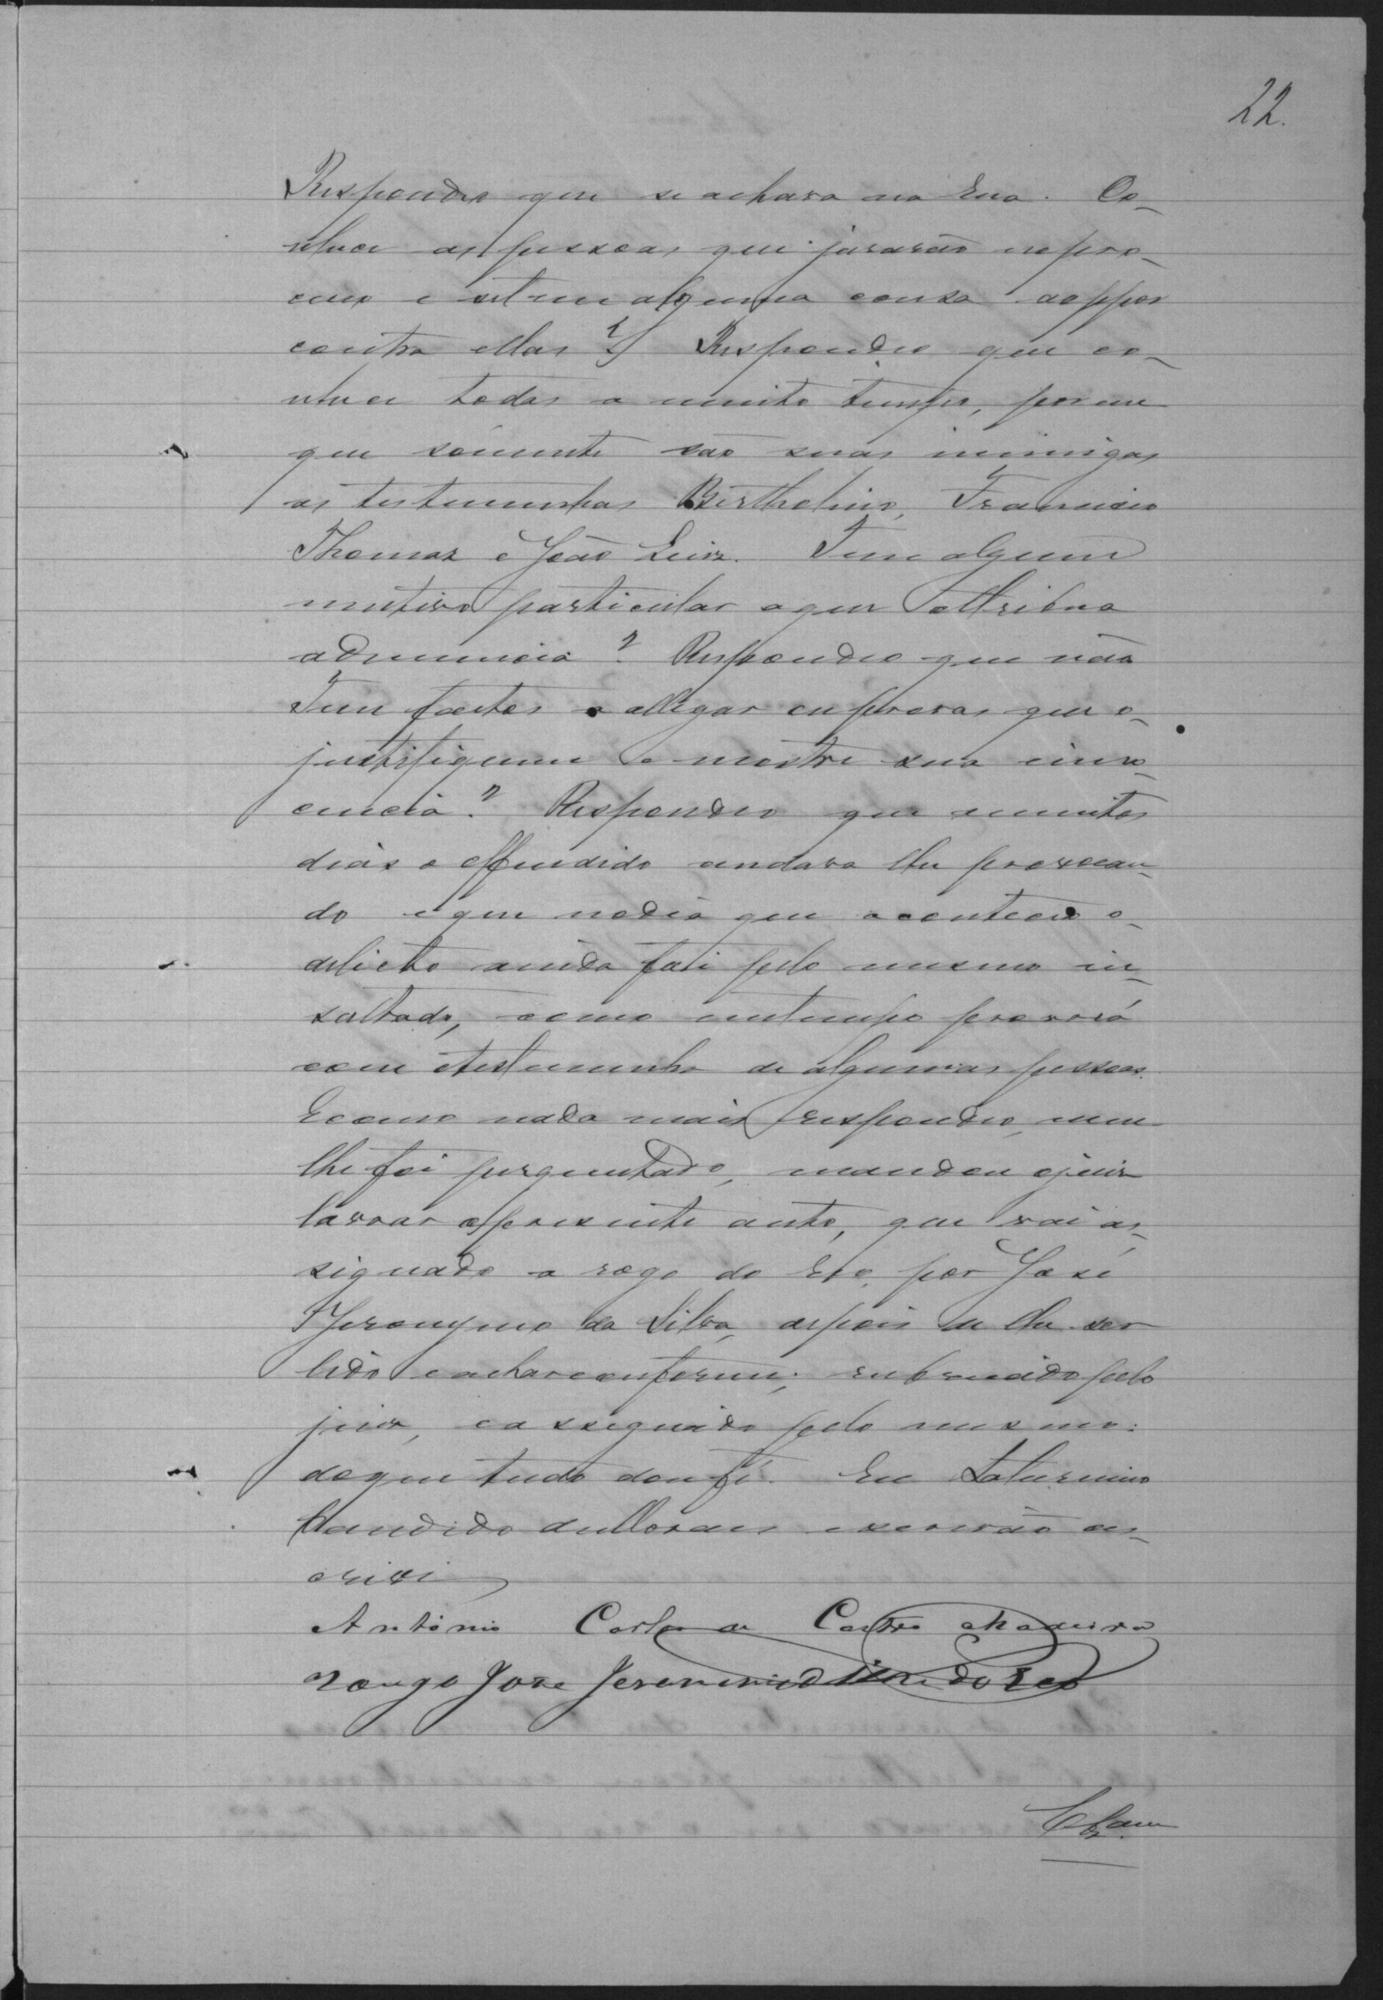 22.
Respondeo que se achava na rua. Co-
nhece as pessoas que jurarão no pro-
cesso e se tem alguma couza a oppor
contra ellas? Respondeo que co-
nhece todas a muito tempo, porem
que sómente são suas inimigas
as testemunhas Bertholino, Francisco
Thomaz e João Luiz. Tem algum
mutivo particular a que attribua
a denuncia? Respondeo que não
Tem factos a allegar ou provas que o
justifiquem e mostre sua inno-
cencia? Respondeo que a muitos
dias o offendido andava lhe provocan-
do e que no dia que aconteceo o
delicto ainda foi pelo mesmo in-
sultado, como em tempo provará
com o testemunho de algumas pessoas.
E como nada mais respondeo, nem
lhe foi perguntado, mandou o juiz
lavrar o presente auto, que vai as-
signado a rogo do reo, por José
Jeronymo da Silva, depois de lhe ser
lido e achar conforme; rubricado pelo
juiz, e assignado pelo mesmo:
do que tudo dou fé. Eu Saturnino
Candido de Moraes escrivão es-
crivi
Antonio Carlos de Castro Madeira
Rougo José Jeronimo da Silva do Reo